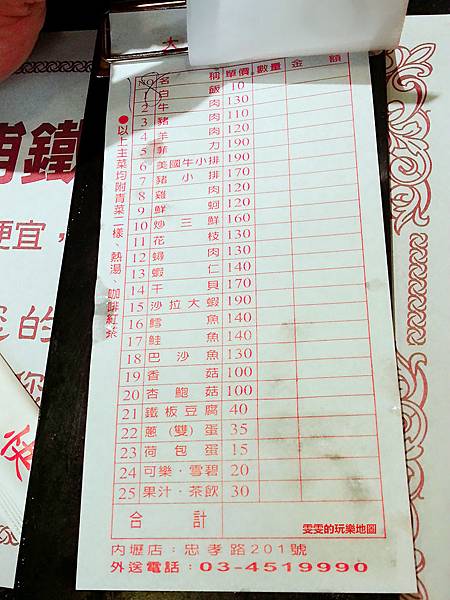 大
NO 名稱 單價 數量 金額
1 白飯 10
2 牛肉 130
3 豬肉 110
4 羊肉 120
5 菲力 190
6 美國牛小排 190
7 豬小排 170
8 雞肉 120
9 鮮蚵 120
10 炒三鮮 160
11 花枝 130
12 蟳肉 130
13 蝦仁 140
14 干貝 170
15 沙拉大蝦 190
16 鱈魚 140
17 鮭魚 140
18 巴沙魚 130
19 香菇 100
20 杏鮑菇 100
21 鐵板豆腐 40
22 蔥(雙)蛋 35
23 荷包蛋 15
24 可樂·雪碧 20
25 果汁·茶飲 30
合計
●以上主菜均附青菜二樣、熱湯、咖啡紅茶
雯雯的玩樂地圖
內壢店:忠孝路201號
外送電話:03-4519990
鐵
便宜,
的
您
快